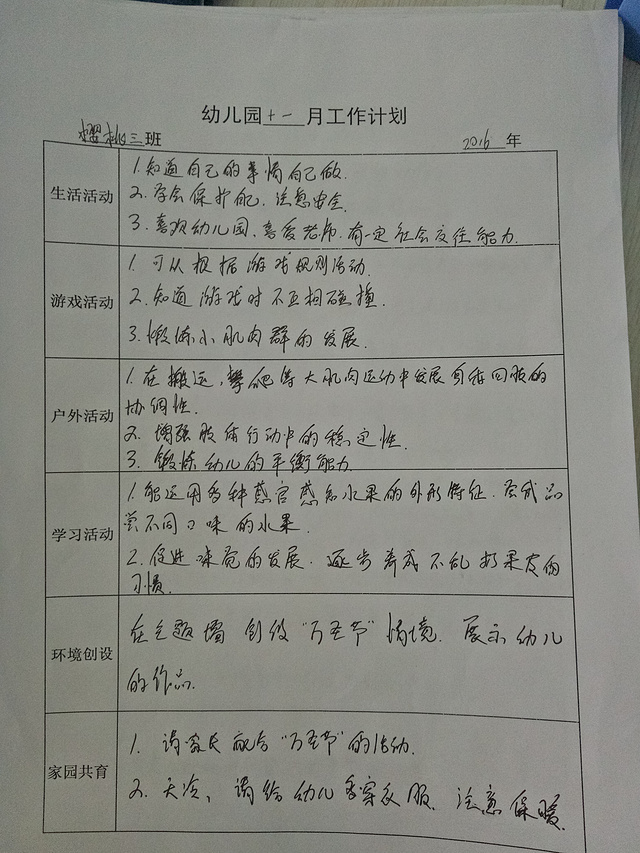 幼儿园十一月工作计划
樱桃三班 2016年
生活活动
1.知道自己的事情自己做.
2.学会保护自己.注意安全.
3.喜欢幼儿园、喜爱老师.有一定社会交往能力.
游戏活动
1.可以根据游戏规则活动.
2.知道游戏时不互相碰撞.
3.锻炼小肌肉群的发展.
户外活动
1.在搬运,攀爬等大肌肉运动中发展身体四肢的
协调性.
2.增强肢体行动中的稳定性.
3.锻炼幼儿的平衡能力
学习活动
1.能运用多种感官感知水果的外形特征.尝试品
尝不同口味的水果.
2.促进味觉的发展.逐步养成不乱扔果皮的
习惯.
环境创设
在主题墙创设“万圣节”情境.展示幼儿
的作品.
家园共育
1.请家长配合“万圣节”的活动.
2.天冷、请给幼儿多穿衣服.注意保暖.